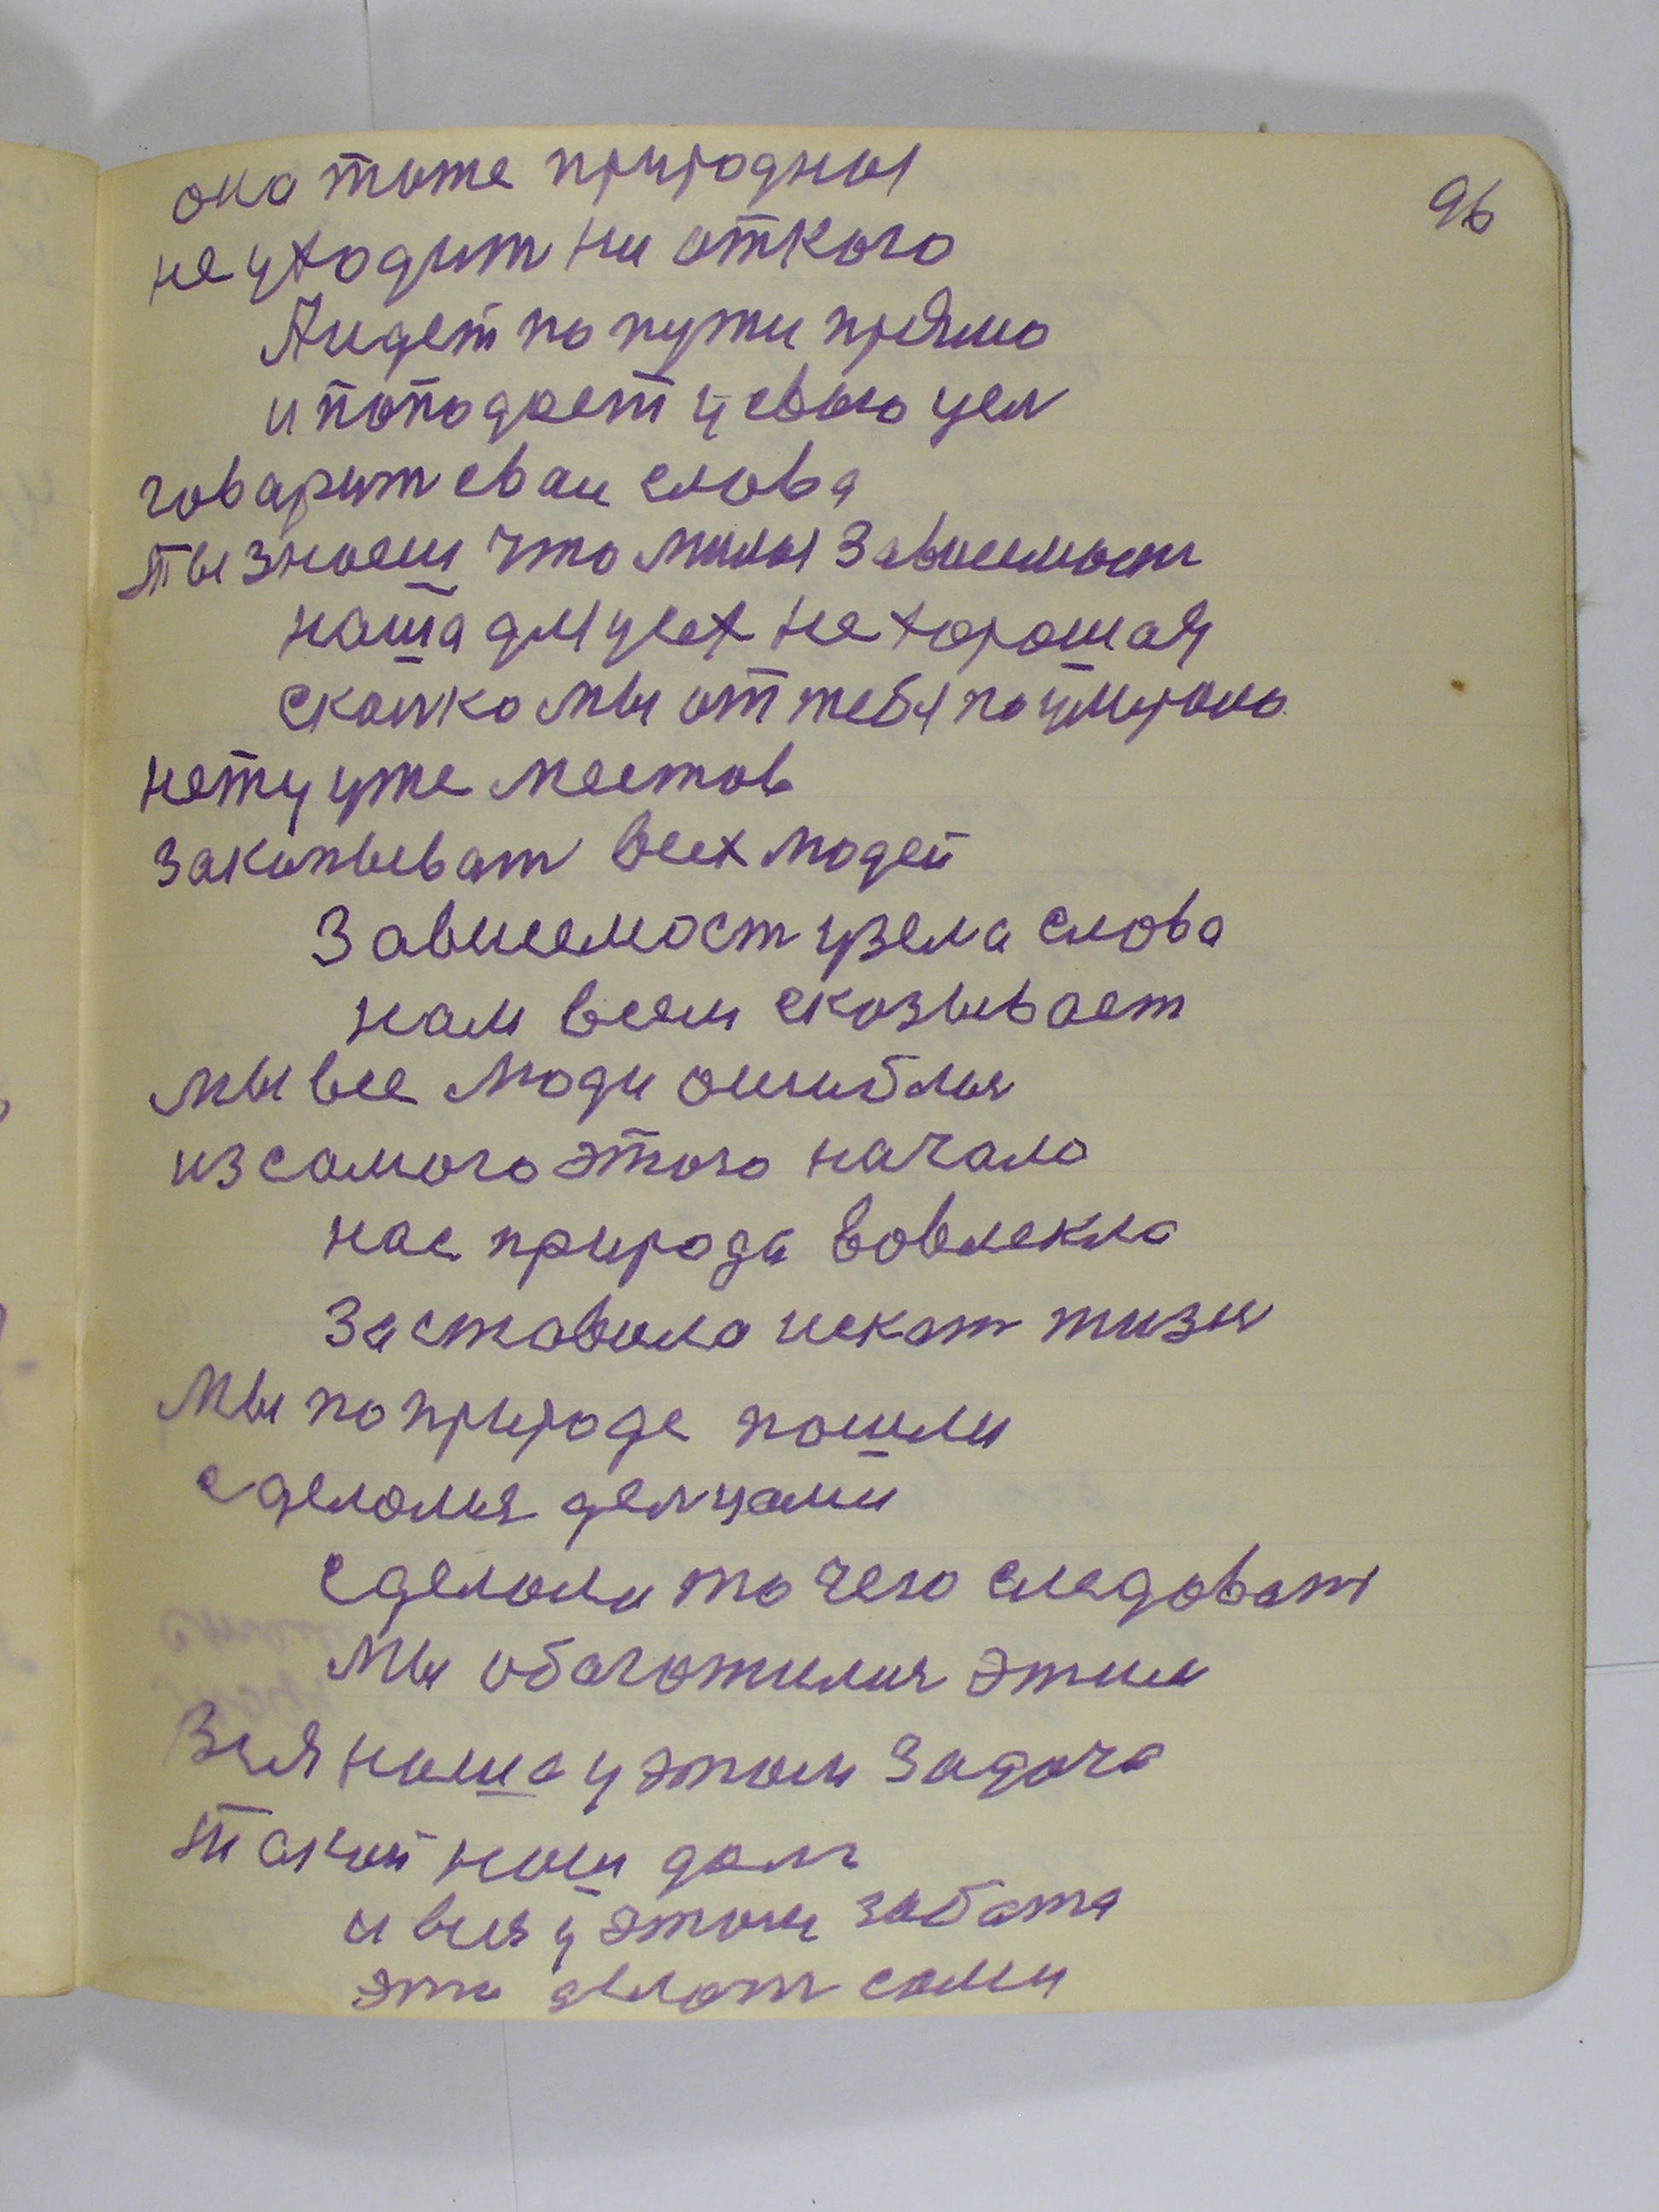 96
она тоже природныя
не уходит ни откого
А идет по пути прямо
и поподает у свою цел
говарит сваи слова
ты знаеш что милы Зависемост
наша для усех не хорошая
сколко мы от тебя поумерало
нету уже местов
закопыват всех людей
Зависемост узела слова
нам всем сказывает
мы все люди ошиблис
из самого этого начало
нас природа вовлекла
Заставила искат жизн
Мы по природе пошли
сделолис делцами
сделоли то чего следоват
Мы обагатилис этим
Вся наша у этом Задача
Такой наш долг
и вся у этом забота
эта делат сами